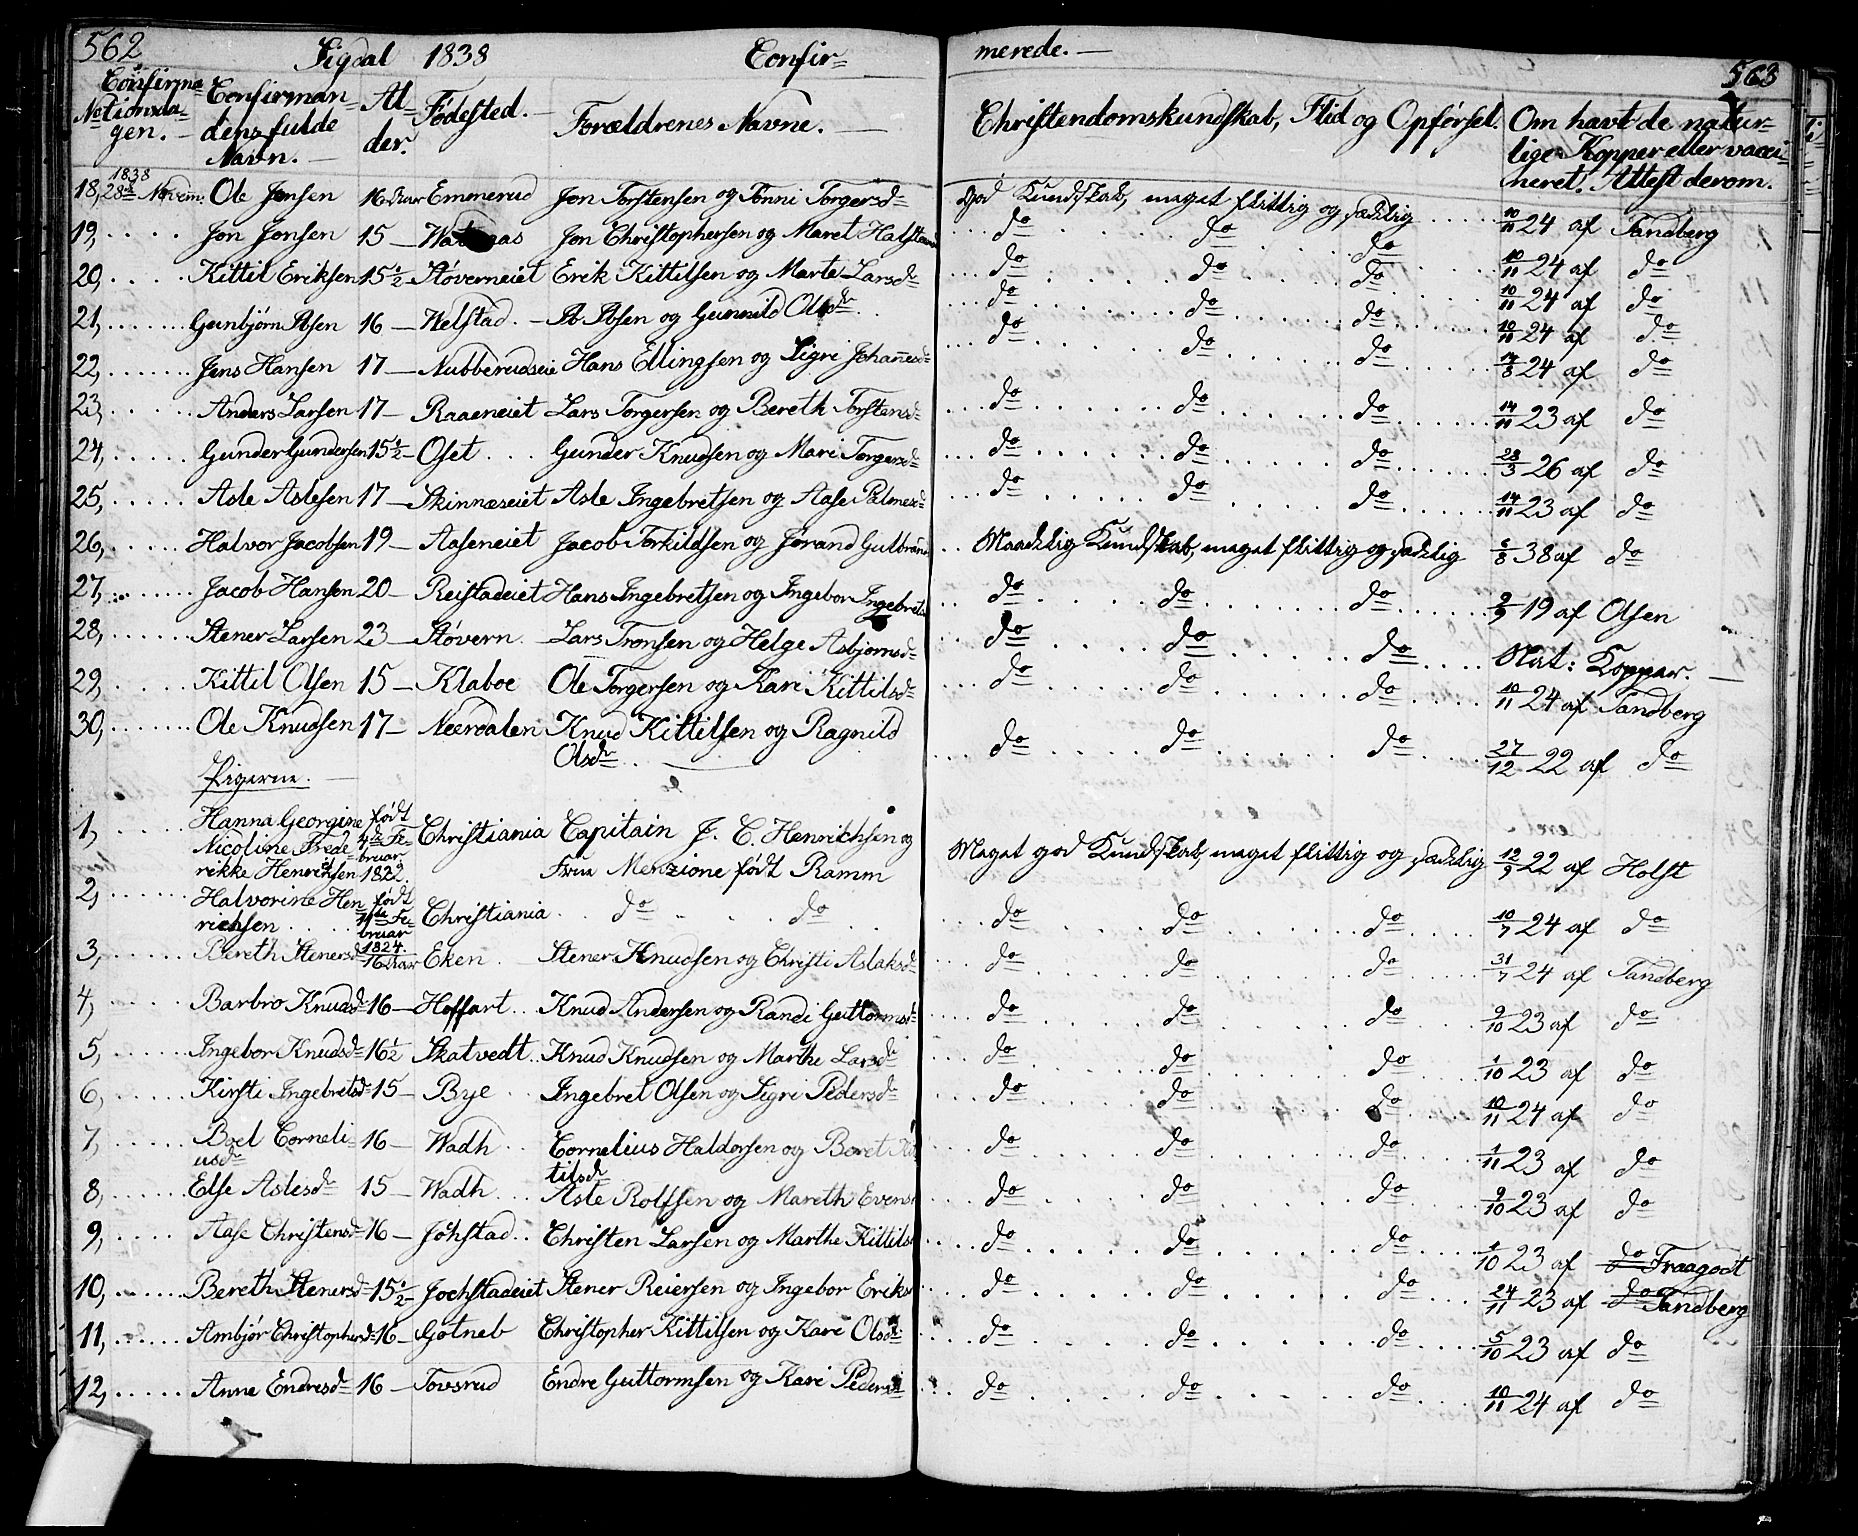 562 Sigdal 1838 Confir= merede. — 563
No Confirmationsdagen. — Confirmandens fulde Navn. — Alder. Fødested. — Forældrenes Navne. — Christendomskundskab, Flid og Opførsel. Om havt de naturlige Kopper eller vaccineret. Attest derom.
1838
18, 28de Novem. Ole Jonsen 16 Aar Emmerud Jon Torstensen og Tonni Torgersd. God Kundskab, meget flittig og sædelig 10/11 24 af Tandberg
19, Jon Jonsen 15 — Jon Christophersen og Maret do do do 10/11 24 af do
20, Kittil Eriksen 15½ Støverneiet Erik Kittilsen og Marte Larsd. do do do 10/11 24 af do
21, Gunbjørn Absen 16 — Welstad. — Ab Absen og Gunnild Olsd. do do do 10/11 24 af do
22, Jens Hansen 17 — Nubberudseie Hans Ellingsen og Sigri Johanesd. do do do 14/8 24 af do
23, Anders Larsen 17 — Raaeneiet Lars Torgersen og Bereth Torstensd. do do do 14/11 23 af do
24, Gunder Gundersen 15½ — Oset Gunder Knudsen og Mari Torgersd. do do do 28/3 26 af do
25, Asle Aslesen 17 — Skinnæseiet Asle Ingebretsen og Aase Palmesd. do do do 14/11 23 af do
26, Halvor Jacobsen 19 — Aaseneiet Jacob Torkildsen og Jørand Gulbrand Maadelig Kundskab, meget flittig og sædelig 6/8 38 af do
27, Jacob Hansen 20 — Reistadeiet Hans Ingebretsen og Ingebor Ingebrets do do do 2/9 19 af Olsen
28, Stener Larsen 23 — Støvern. Lars Tronsen og Helge Asbjørnsd. do do do Nat: Koppar. —
29, Kittil Olsen 15 — Klaboe Ole Torgersen og Kari Kittilsd. do do do 10/11 24 af Tandberg
30, Ole Knudsen 17 — Neerdalen Knud Kittilsen og Ragnild
Olsd. do do do 27/12 22 af do
Pigerne. —
1, Hanna Georgine Nicoline Frederikke Henrichsen født 4de Februar 1822. Christiania Capitain J. C. Henrichsen og
Frue Menzione født Ramm Meget god Kundskab, meget flittig og sædelig 12/9 22 af Holst
2, Halvorine Henrichsen født 11te Februar 1824. Christiania do do do do do 10/7 24 af do
3, Bereth Stenersd. 16 Aar Eken Stener Knudsen og Christi Aslaksd. do do do 31/7 24 af Tandberg
4, Barbro Knudsd. 16 — Hoffart Knud Andersen og Randi Guttormsd. do do do 9/10 23 af do
5, Ingebor Knudsd. 16½ Skatvedt Knud Knudsen og Marthe Larsd. do do do 1/10 23 af do
6, Kirsti Ingebretsd. 15 — Bye Ingebret Olsen og Sigri Pedersd. do do do 10/11 24 af do
7, Boel Corneliusd. 16 — Wadh Cornelius Haldorsen og Beret
tilsd. do do do 1/11 23 af do
8, Else Aslesd. 15 — Wadh Asle Rolfsen og Mareth Evens do do do 9/10 23 af do
9, Aase Christensd. 16 — Johstad Christen Larsen og Marthe Kittils do do do 1/10 23 af do Fraagodt
10, Bereth Stenersd. 15½ — Jochstadeiet Stener Reiersen og Ingebor Eriks do do do 24/11 23 af do Tandberg
11, Ambjør Christophersd. 16 — Gotneb Christopher Kittilsen og Kari Olsd. do do do 5/10 23 af do
12, Anne Endresd. 16 — Tovsrud Endre Guttormsen og Kari Pedersd. do do do 10/11 24 af do